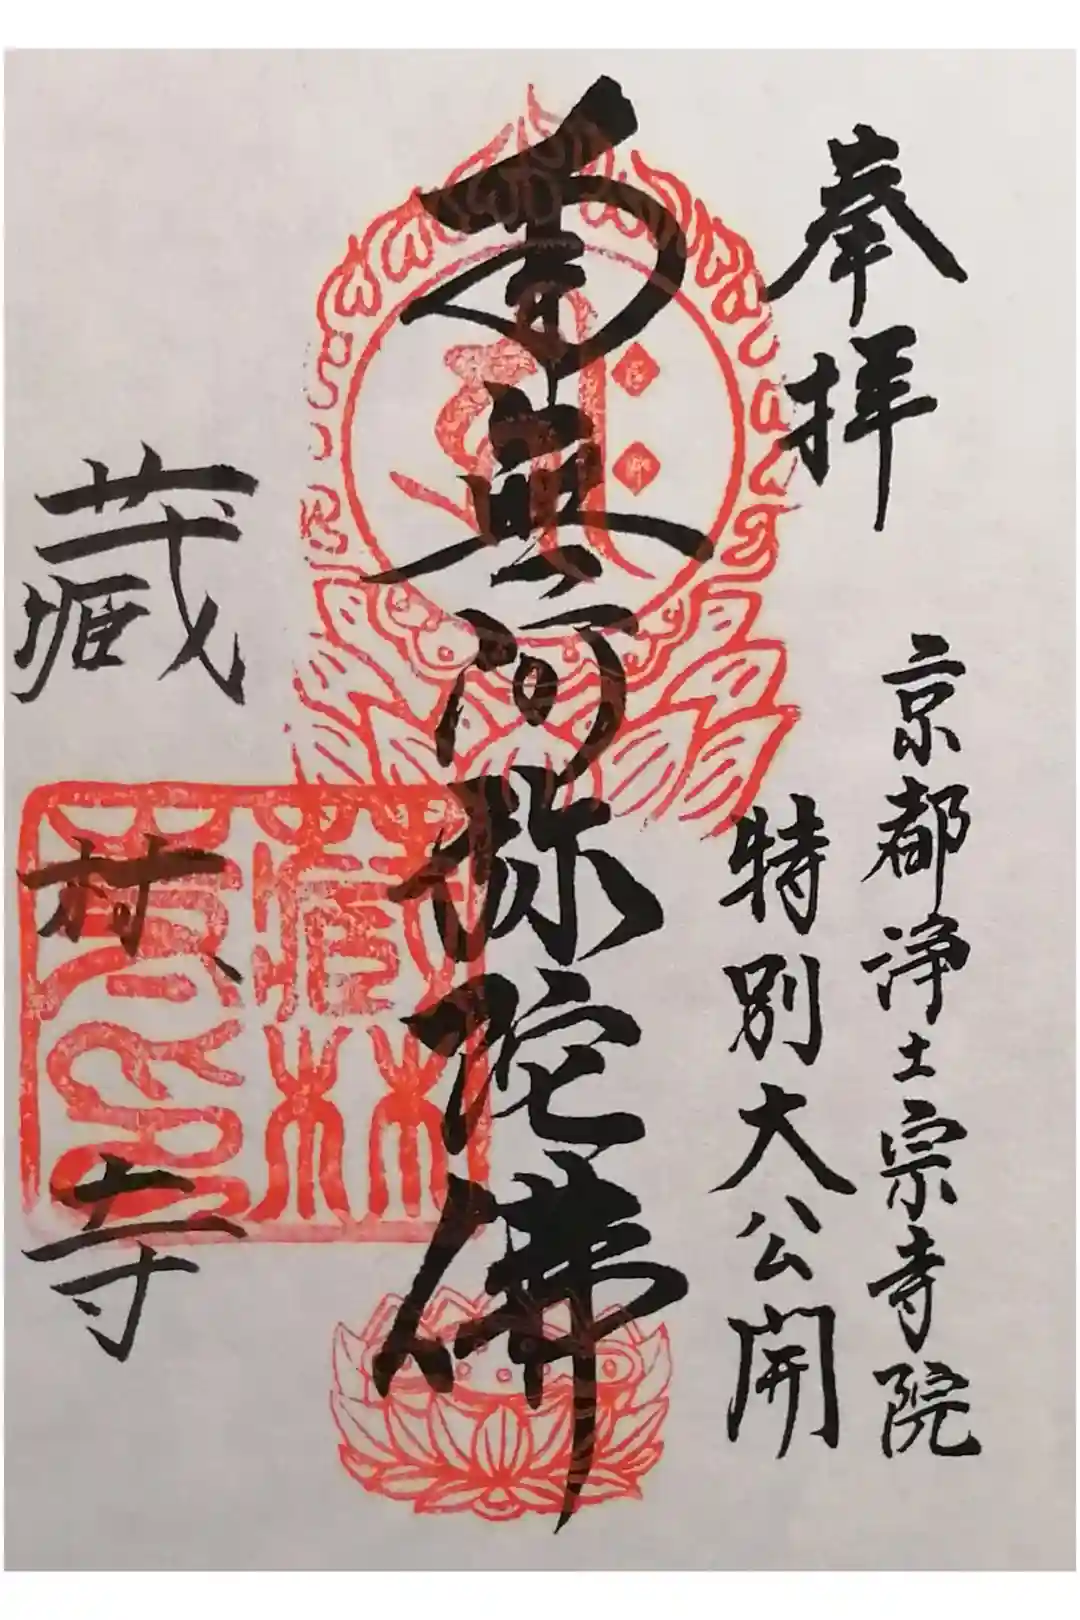 奉拝
京都浄土宗寺院
特別大公開
南無阿弥陀佛
蔵林寺